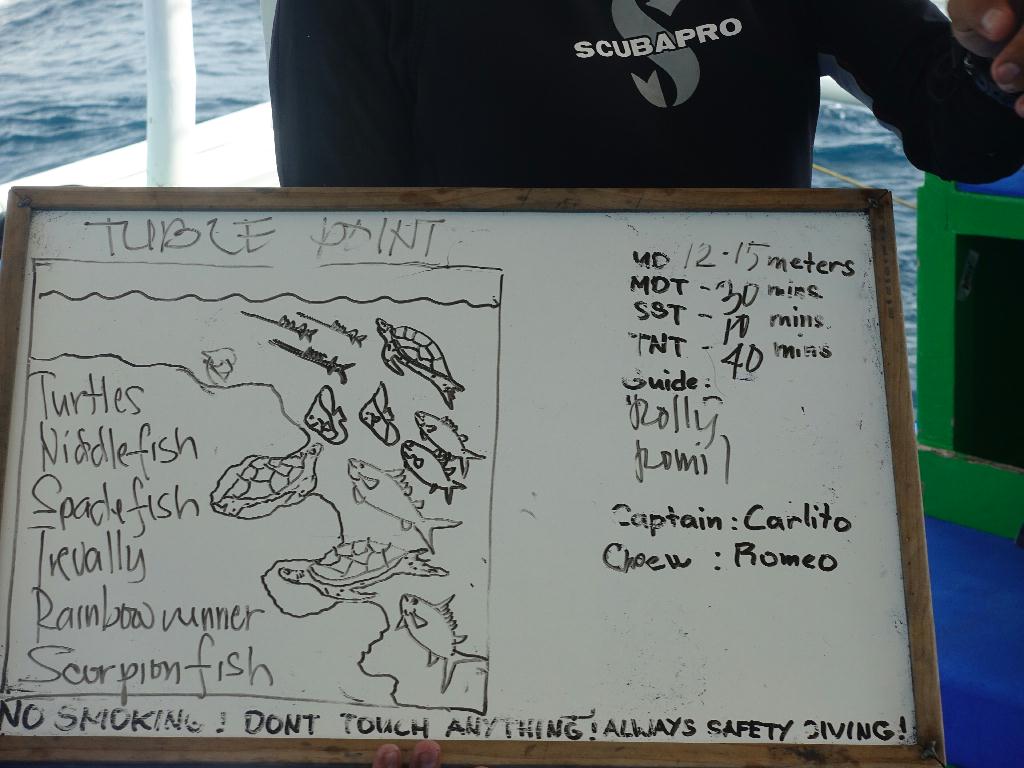 SCUBAPRO
TURLE POINT
MD 12-15 meters
MDT - 30 mins
SST - 10 mins
TNT - 40 mins
Guide:
Rolly
Romil
Captain: Carlito
Chew : Romeo
Turtles
Niddlefish
Spadefish
Trevally
Rainbow runner
Scorpionfish
NO SMOKING! DONT TOUCH ANYTHING! ALWAYS SAFETY DIVING!